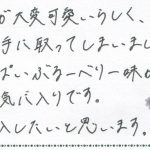 が大変可愛いらしく、
手に取ってしまいまし
ズいぶるーべりー味か
気に入りです。
入したいと思います。